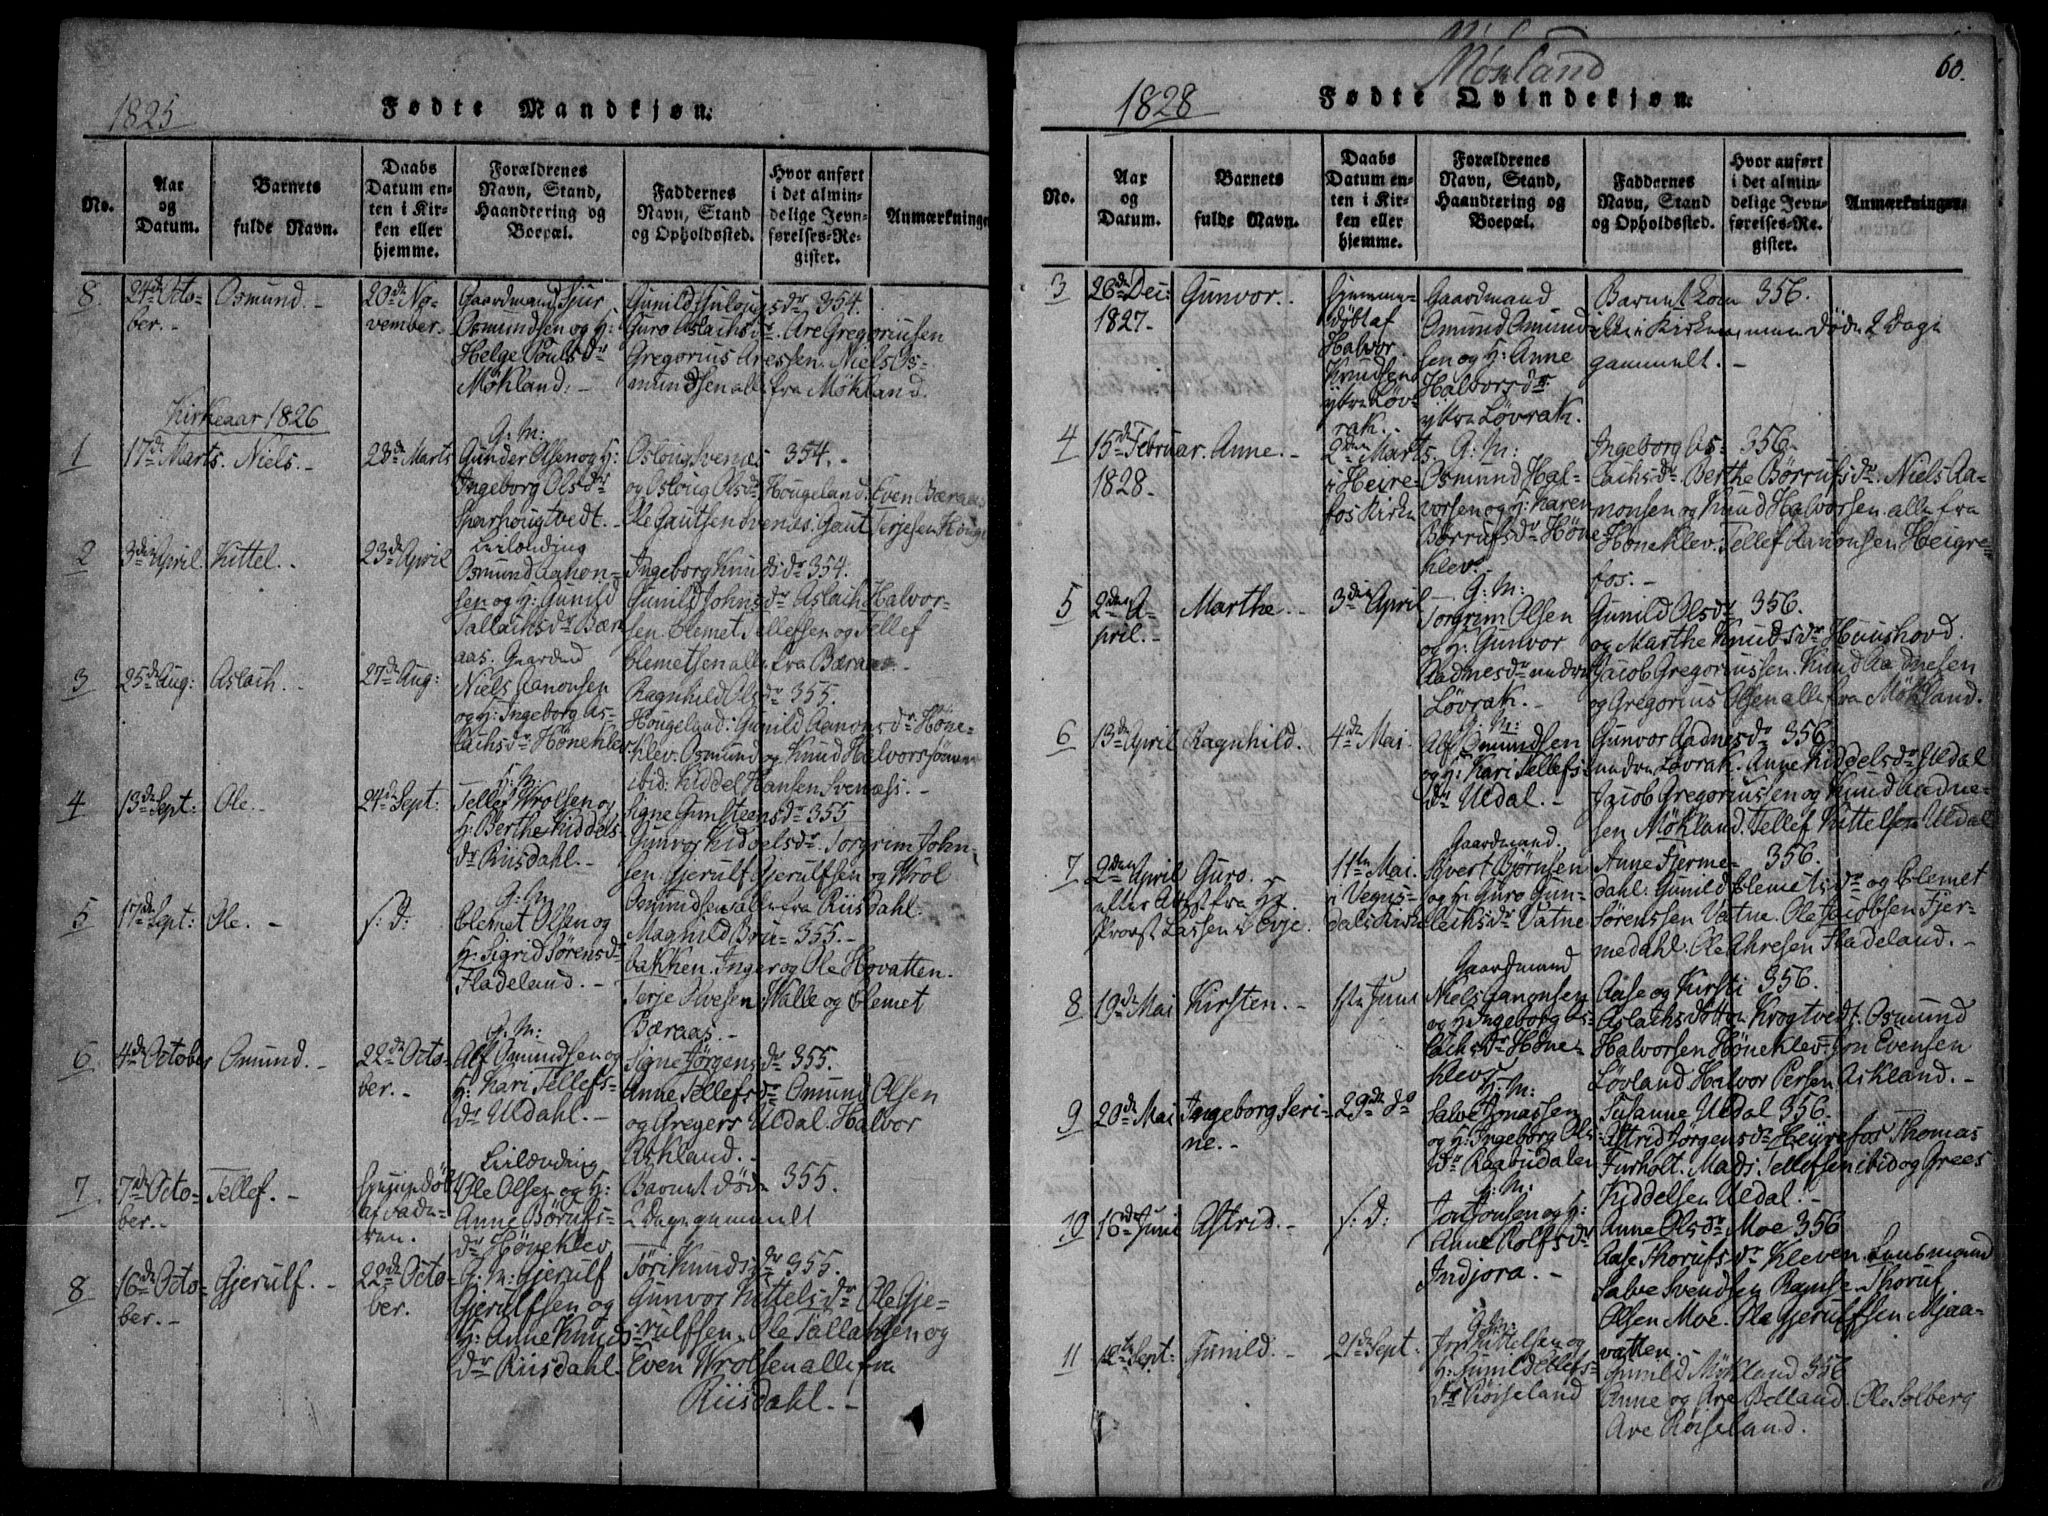 1825
Fødte Mandkjøn:
No.
Aar og Datum.
Barnets fulde Navn.
Daabs Datum enten i Kirken eller hjemme.
Forældrenes Navn, Stand, Haandtering og Boepæl.
Faddernes Navn, Stand og Opholdssted.
Hvor anført i det almindelige Jevnførelses-Register.
Anmærkninger
8. 24de October. Osmund. 20de November. Gaardmand Sjur Osmundsen og H: Helge Pouls dr Møkland.
Guro Aslachs dr. Are Gregoriusen
Gregorius Aresen. Niels Osmundsen alle fra Møkland. 354.
Kirkeaar 1826
1 17de Marts. Niels. 28de Marts G. M: Gunder Olsen og H: Ingeborg Ols dr
og Osloug Ols dr Hougeland. Even Bæraas
Ole Gautsen Svenæs. Gaut Terjesen 354.
2 3die April. Kittel. 23de April Leilænding Osmund Aanonsen og H: Gunild Tallachs dr Bæraas.
Ingeborg Knuds dr 354.
Gunild Johns dr Aslach Halvorsen. Clemet Tellefsen og Tellef
Clemetsen alle fra Bæraas.
3 25de Aug: Aslach. 27de Aug: Gaardmd Niels Aanonsen og H: Ingeborg Aslachs dr Höneklev
Ragnhild Ols dr 355.
Hougeland: Gunild Aanons dr Höneklev. Osmund og Knud Halvorsønner
ibid: Kiddel Hansen Svenæss.
4 13de Sept: Ole. 24de Sept: G: M: Tellef Wrolsen og H: Berthe Kiddels dr Riisdahl.
Signe Gunsteens dr 355
Gunvor Kiddels dr. Torgrim Johnsen. Gjerulf Gjerulfsen og Wrol
Osmundsen alle fra Riisdahl.
5 17de Sept: Ole. s: d: G: M: Clemet Olsen og H: Sigrid Sørens dr Fladeland.
Magnild Brubakken. Inger og Ole Hovatten. 355.
Terje Olvesen Walle og Clemet
Bæraas.
6 4de October Omund. 22de October. G. M: Alf Omundsen og H: Kari Tellefs dr Ueldahl.
Signe Jörgens dr 355.
Anne Tellefs dr Omund Olsen
og Gregers Uldal. Halvor
Askland.
7. 7de October. Tellef. Leilænding Ole Olsen og H: Anne Børufs dr Höneklev
Barnet døde 355.
2 Dage gammelt
8 16de October. Gjerulf. 22de October. G: M: Gjerulf Gjerulfsen og H: Anne Knuds dr Riisdahl.
Töri Knuds dr 355.
Gunvor Kittels dr Ole Gjerulfsen. Ole Tallachsen og
Even Wrolsen alle fra
Riisdahl.
Møkland
60.
1828
Fødte Qvindekjøn:
No.
Aar og Datum.
Barnets fulde Navn.
Daabs Datum enten i Kirken eller hjemme.
Forældrenes Navn, Stand, Haandtering og Boepæl.
Faddernes Navn, Stand og Opholdssted.
Hvor anført i det almindelige Jevnførelses-Register.
Anmærkninger.
3 26de Dec: 1827. Gunvor. Hjemmedøbt af Halvor Knudsen ytre Løvrak. Gaardmand Osmund Omundsen og H: Anne Halvors dr ytre Løvrak.
Barnet kom 356.
ikke i Kirken, men døde 2 Dage
gammelt.
4 15de Februar 1828. Anne. 2den Marts i Heirefos Kirke G: M: Osmund Halvorsen og H: Karen Börrufs dr Höneklev.
Ingeborg Aslachs dr Berthe Börrufs dr. Niels Aanonsen og Knud Halvorsen alle fra 356.
Höneklev. Tellef Aanonsen Heigrefos.
5 2den April. Marthe. 3die April G: M: Torgrim Olsen og H: Gunvor Aadnes dr nedre Løvrak.
Gunild Ols dr 356.
og Marthe Knuds dr Huushovd.
Jacob Gregoriussen. Knud Aadnesen
og Gregorius Olsen alle fra Møkland.
6 13de April Ragnhild. 4de Mai. G: M: Alf Omundsen og H: Kari Tellefs dr Ueldal.
Gunvor Aadnes dr 356
nedre Løvrak. Anne Kiddels dr Ueldal
Jacob Gregoriussen og Knud Aadnesen Møkland. Tellef Kittelsen Uldal
7 2den April Guro. 11te Mai i Vegusdals Kirke Gaardmand Sivert Bjørnsen og H: Guro Gunleichs dr Vatne
efter Attest fra Hr. Provst Lassen i Evje.
Anne Fjermedahl. Gunild Clemets dr og Clemet 356.
Sörenssen Vatne. Ole Jacobsen Fjermedahl. Ole Ahresen Fladeland.
8 19de Mai Kirsten. 1ste Juni Gaardmand Niels Aanonsen og H: Ingeborg Aslachs dr Höneklev
Aase og Kirsti 356.
Aslachs döttre Krogtvedt. Osmund
Halvorsen Höneklev. Jon Evensen
Løvland. Halvor Persen Askland.
9 20de Mai Ingeborg Serine. 29de do H: M: Salve Jonassen og H: Ingeborg Ols dr Raabudalen
Susanne Uldal 356.
Astrid Jørgens dr Heyrefos Thomas
Furholt. Mads Tellefsen ibid og Grees
Kiddelsen Ueldal.
10 16de Juni Astrid. s: d: G: M: Jon Jonsen og H: Anne Rolfs dr Indjora.
Anne Ols dr Moe 356
Aase Thorufs dr Kleven. Lensmand
Salve Svendsen Ramse. Thoruf
Olsen Moe. Ole Gjerulfsen Mjaavatten.
11 12te Sept: Gunild. 21de Sept. G: M: Jon Kittelsen og H: Gunild Tellefs dr Röiseland
Gunild Møkland 356
Anne og Are Belland. Ole Solberg
Are Röiseland.